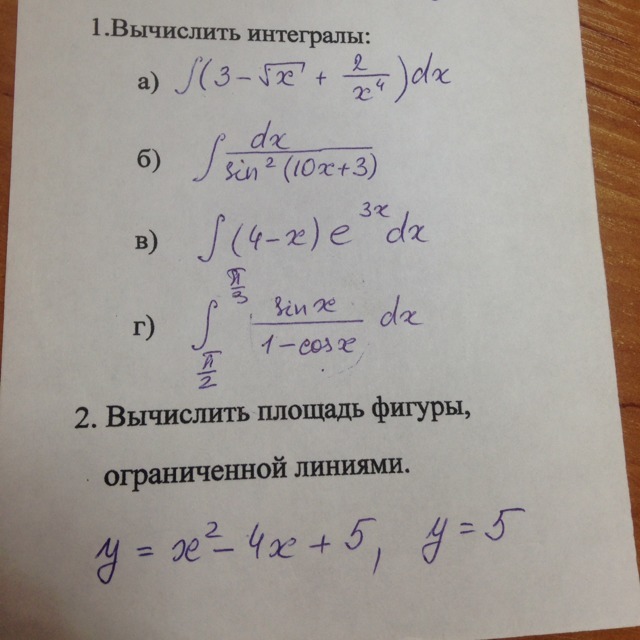 1.Вычислить интегралы:
а) ∫(3 − √x + 2/x⁴)dx
б) ∫ dx/sin²(10x+3)
в) ∫(4−x)e^(3x)dx
г) ∫_(π/2)^(π/3) sinx/(1−cosx) dx
2. Вычислить площадь фигуры,
ограниченной линиями.
y = x² − 4x + 5, y = 5